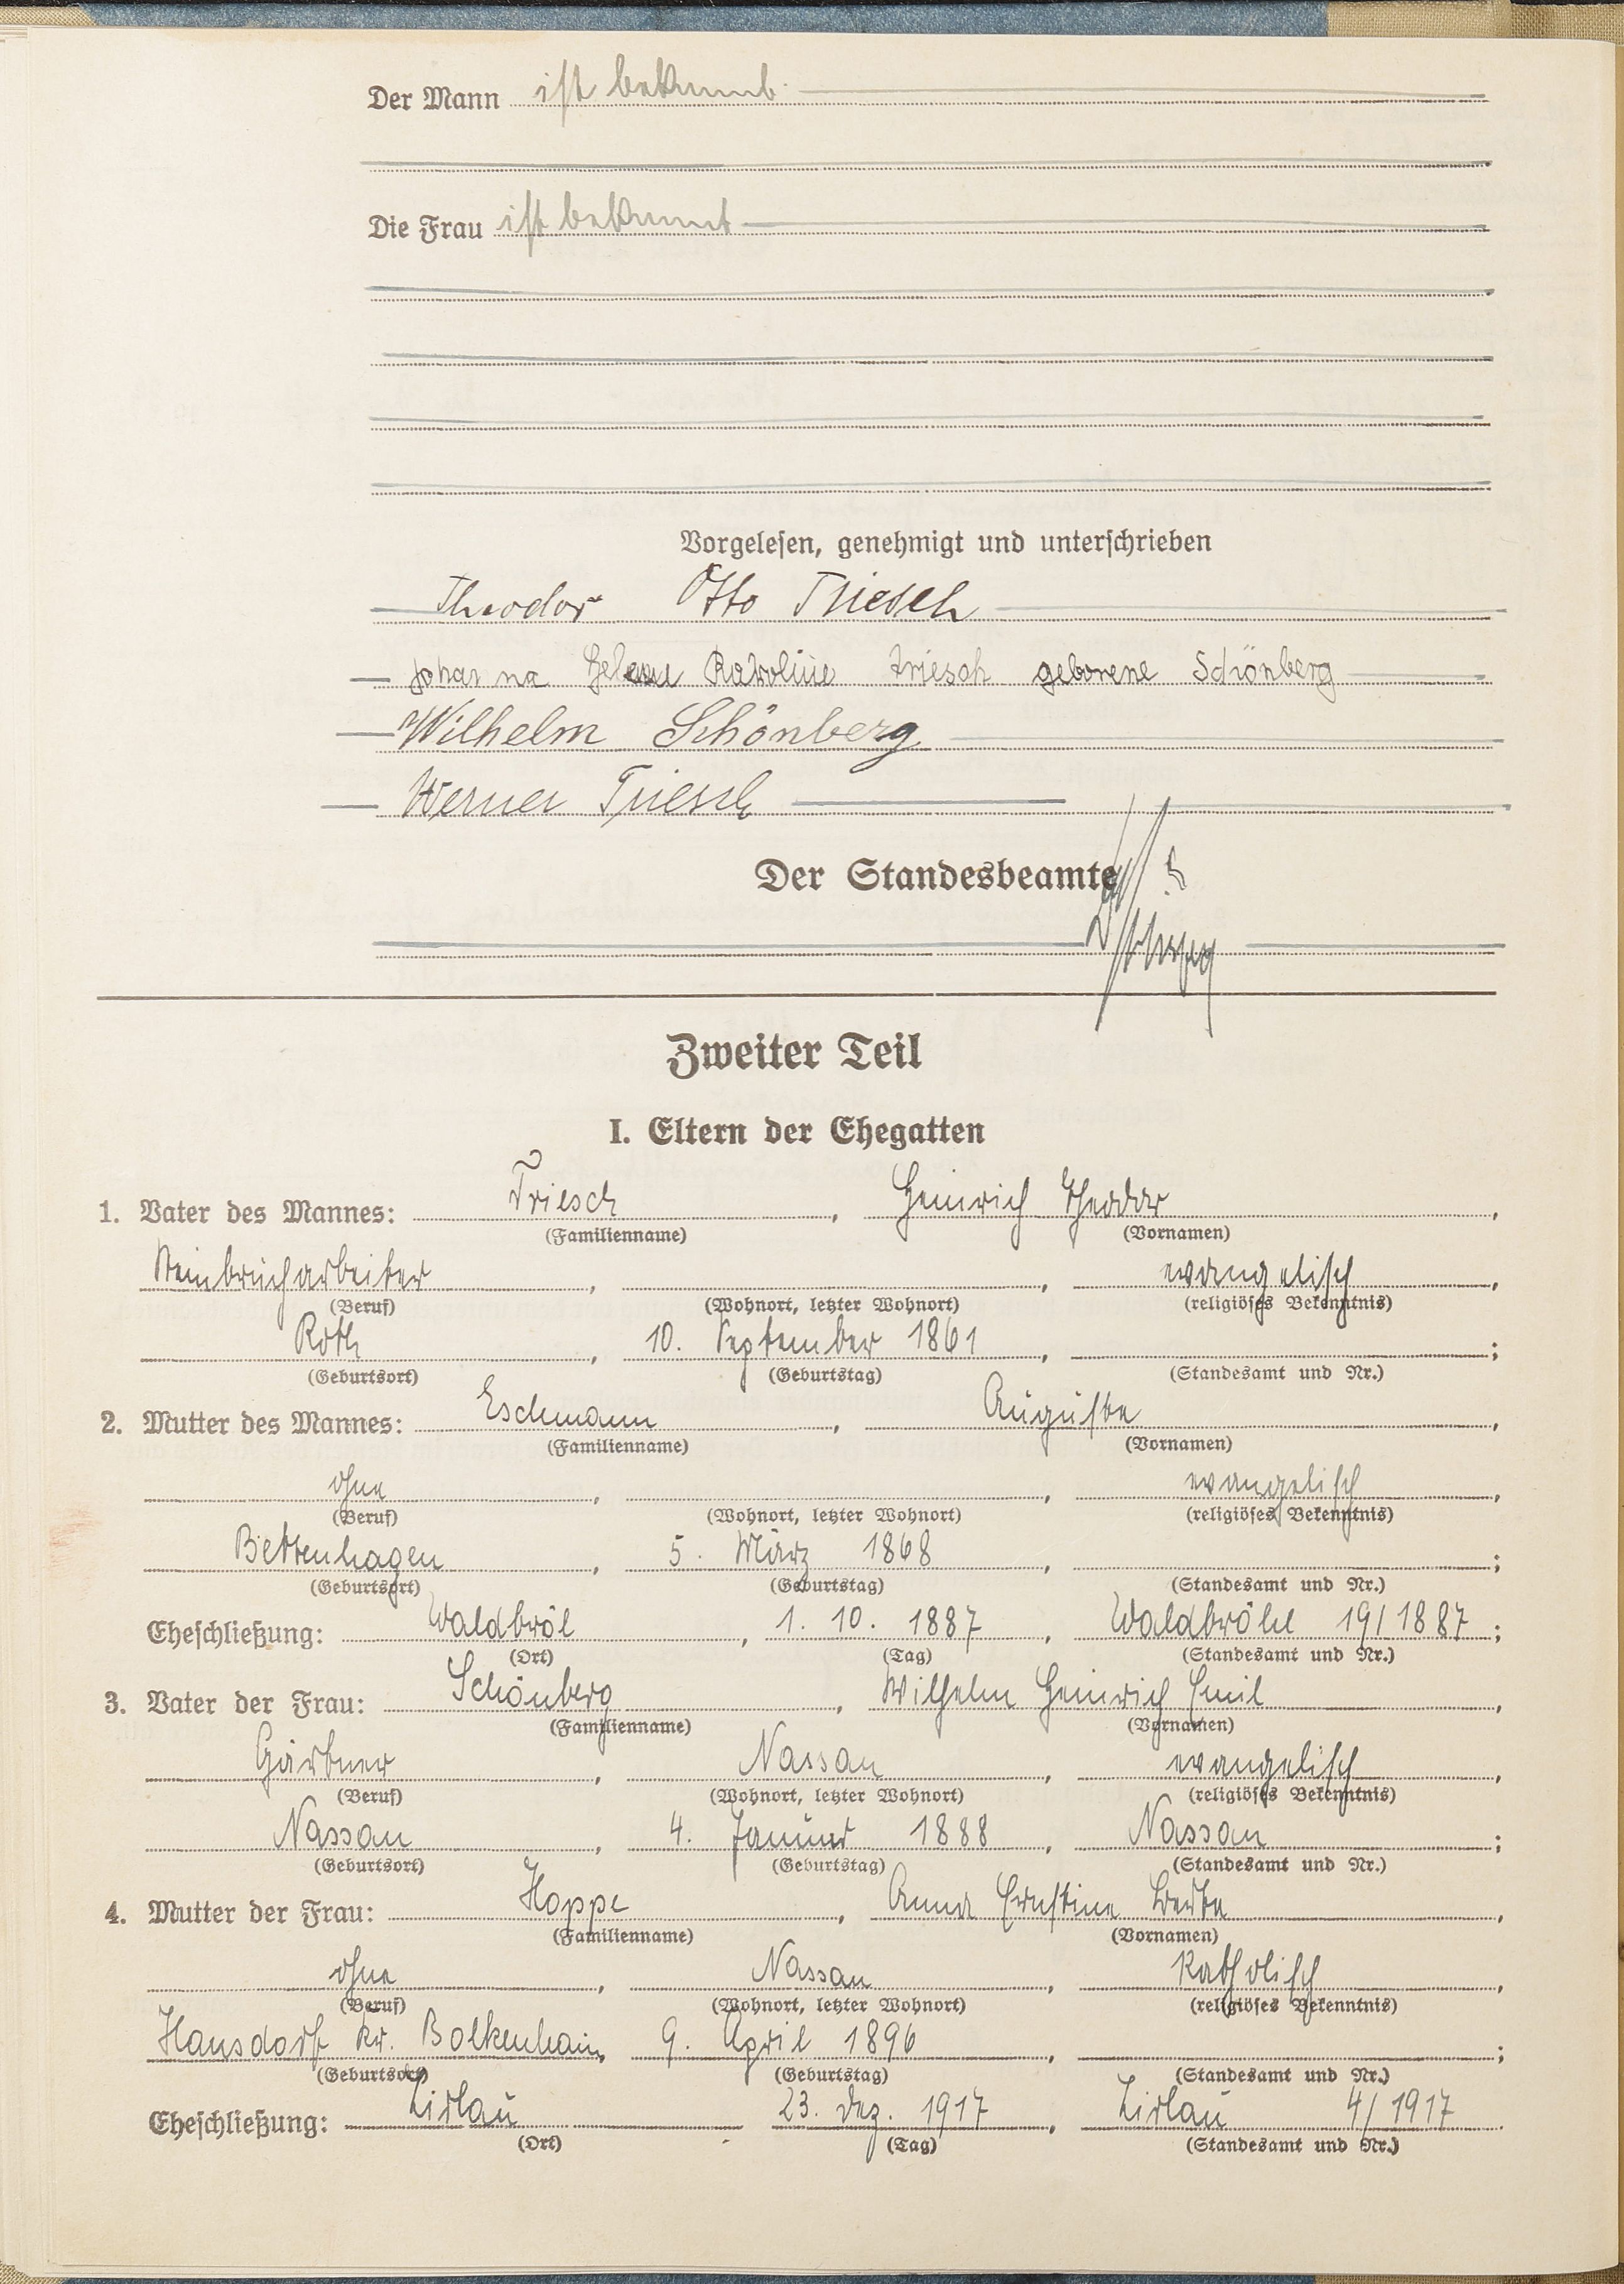 Der Mann ist bekannt
Die Frau ist bekannt
Vorgelesen, genehmigt und unterschrieben
Theodor Otto Triesch
Johanna Helene Karoline Triesch geborene Schönberg
Wilhelm Schönberg
Werner Triesch
Der Standesbeamte
Zweiter Teil
I. Eltern der Ehegatten
1. Vater des Mannes: Triesch, Heinrich Theodor,
(Familienname) (Vornamen)
Steinbrucharbeiter, , evangelisch,
(Beruf) (Wohnort, letzter Wohnort) (religiöses Bekenntnis)
Roth, 10. September 1861, ;
(Geburtsort) (Geburtstag) (Standesamt und Nr.)
2. Mutter des Mannes: Eschmann, Auguste,
(Familienname) (Vornamen)
ohne, , evangelisch,
(Beruf) (Wohnort, letzter Wohnort) (religiöses Bekenntnis)
Bettenhagen, 5. März 1868, ;
(Geburtsort) (Geburtstag) (Standesamt und Nr.)
Eheschließung: Waldbröl, 1. 10. 1887, Waldbröhl 19/1887;
(Ort) (Tag) (Standesamt und Nr.)
3. Vater der Frau: Schönberg, Wilhelm Heinrich Emil,
(Familienname) (Vornamen)
Gärtner, Nassau, evangelisch,
(Beruf) (Wohnort, letzter Wohnort) (religiöses Bekenntnis)
Nassau, 4. Januar 1888, Nassau;
(Geburtsort) (Geburtstag) (Standesamt und Nr.)
4. Mutter der Frau: Hoppe, Anna Ernestine Berta,
(Familienname) (Vornamen)
ohne, Nassau, katholisch,
(Beruf) (Wohnort, letzter Wohnort) (religiöses Bekenntnis)
Hausdorf Kr. Bolkenhain, 9. April 1896, ;
(Geburtsort) (Geburtstag) (Standesamt und Nr.)
Eheschließung: Zirlau 23. Dez. 1917, Zirlau 4/1917
(Ort) (Tag) (Standesamt und Nr.)